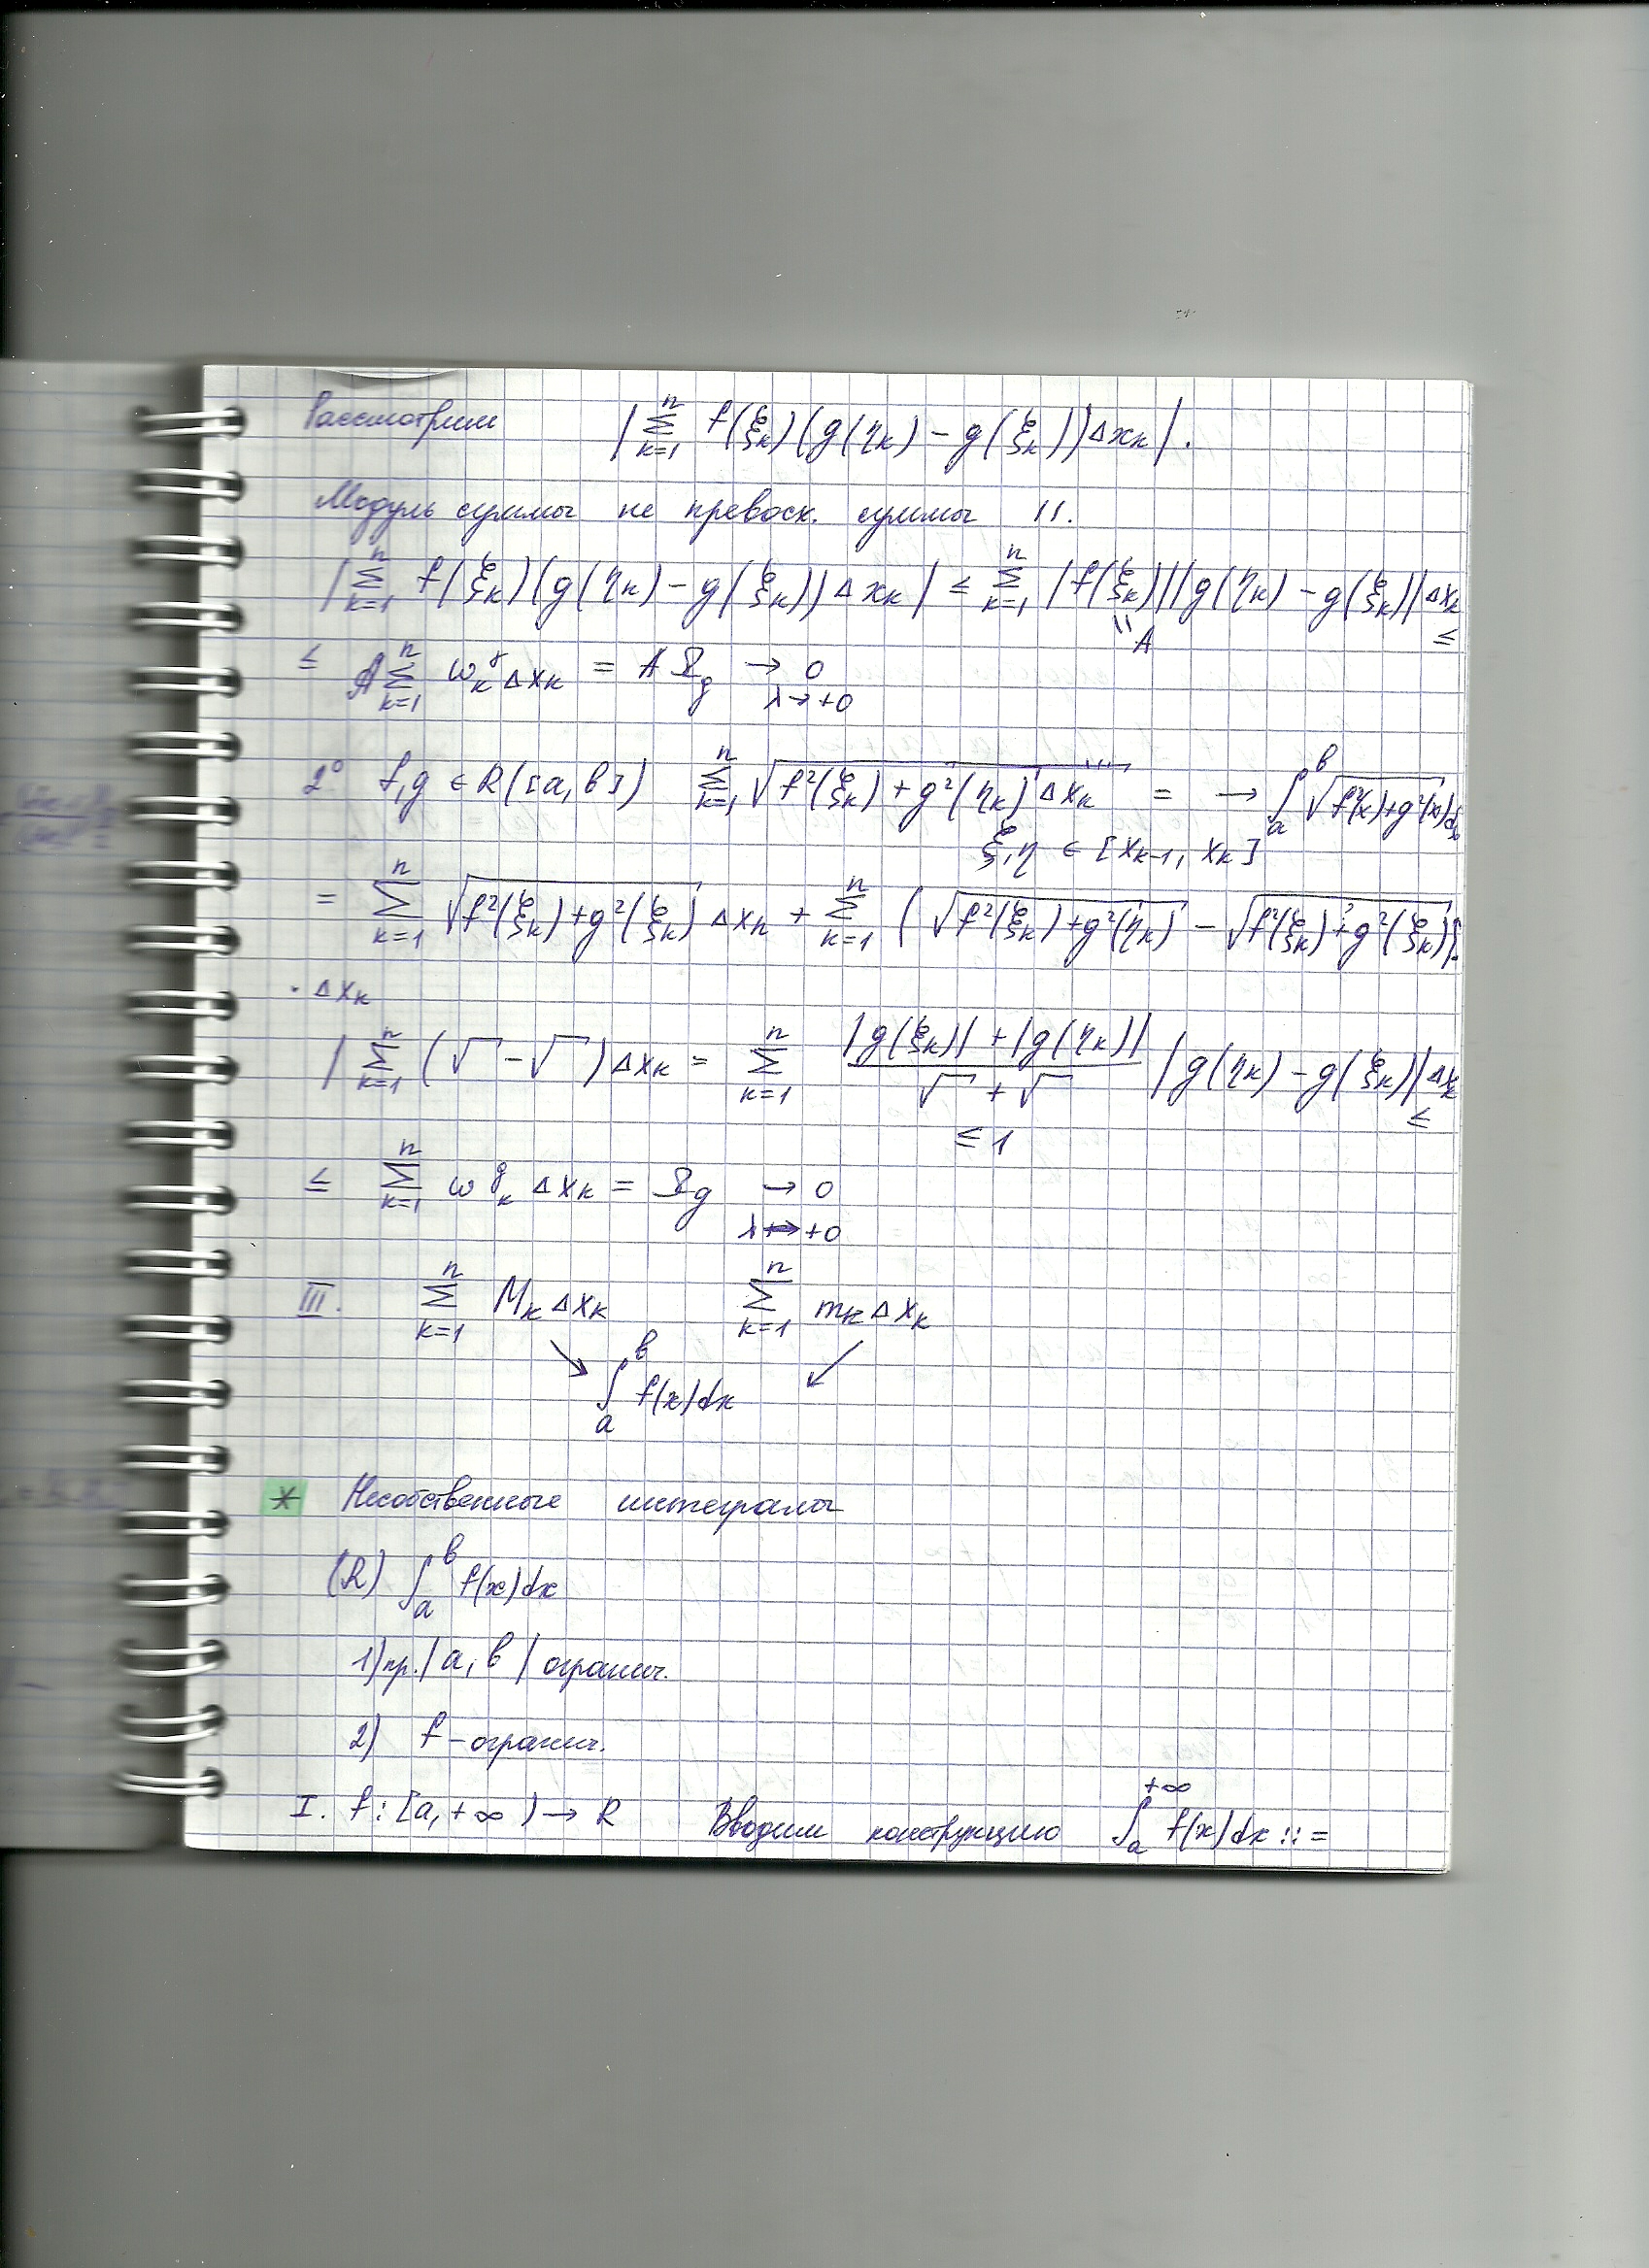 Рассмотрим |∑_{k=1}^{n} f(ξ_k)(g(η_k) − g(ξ_k))Δx_k|.
Модуль суммы не превосх. суммы ||.
|∑_{k=1}^{n} f(ξ_k)(g(η_k) − g(ξ_k))Δx_k| ≤ ∑_{k=1}^{n} |f(ξ_k)||g(η_k) − g(ξ_k)|Δx_k ≤
" A
≤ A∑_{k=1}^{n} ω_k^g Δx_k = A Ω_g → 0
λ→+0
2° f,g ∈ R([a,b]) ∑_{k=1}^{n} √(f²(ξ_k) + g²(η_k)) Δx_k = → ∫_a^b √(f²(x)+g²(x)) dx
ξ,η ∈ [x_{k−1}, x_k]
= ∑_{k=1}^{n} √(f²(ξ_k)+g²(ξ_k)) Δx_k + ∑_{k=1}^{n} (√(f²(ξ_k)+g²(η_k)) − √(f²(ξ_k)+g²(ξ_k)))·
· Δx_k
|∑_{k=1}^{n} (√ − √)Δx_k = ∑_{k=1}^{n} (|g(ξ_k)| + |g(η_k)|)/(√ + √) |g(η_k) − g(ξ_k)|Δx_k ≤
≤ 1
≤ ∑_{k=1}^{n} ω_k^g Δx_k = Ω_g → 0
λ→+0
III. ∑_{k=1}^{n} M_k Δx_k ∑_{k=1}^{n} m_k Δx_k
↘ ∫_a^b f(x)dx ↙
* Несобственные интегралы
(R) ∫_a^b f(x)dx
1) пр. |a, b| огранич.
2) f – огранич.
I. f: [a, +∞) → R Вводим конструкцию ∫_a^{+∞} f(x)dx ::=